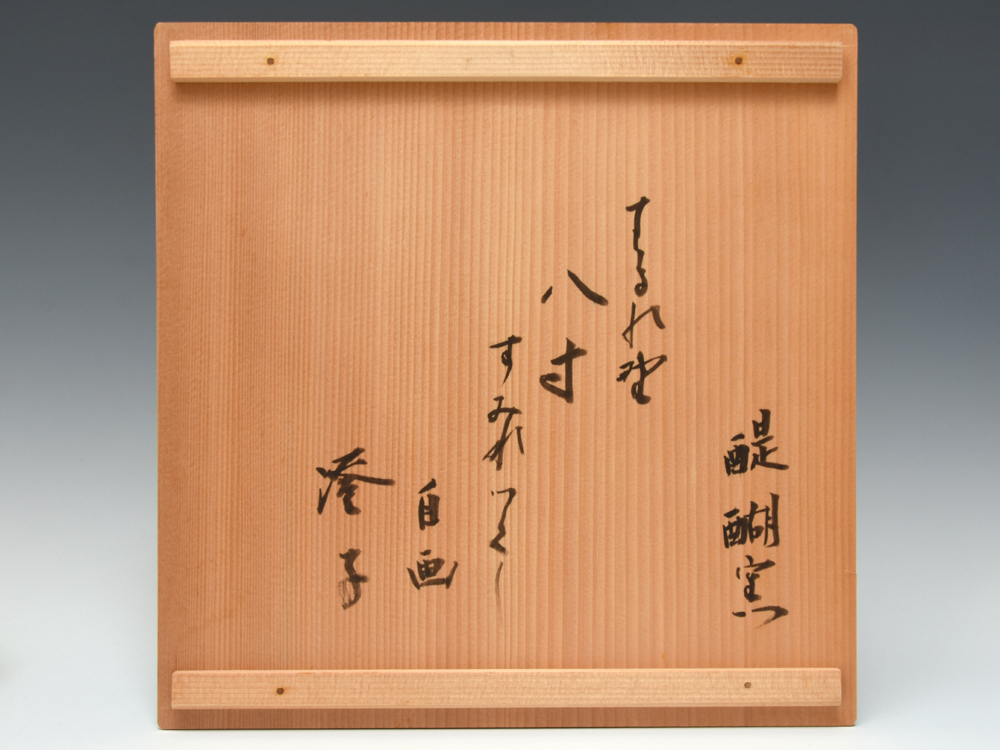 醍醐窯
すみれ野
八寸
すみれつくし
自画
澄子